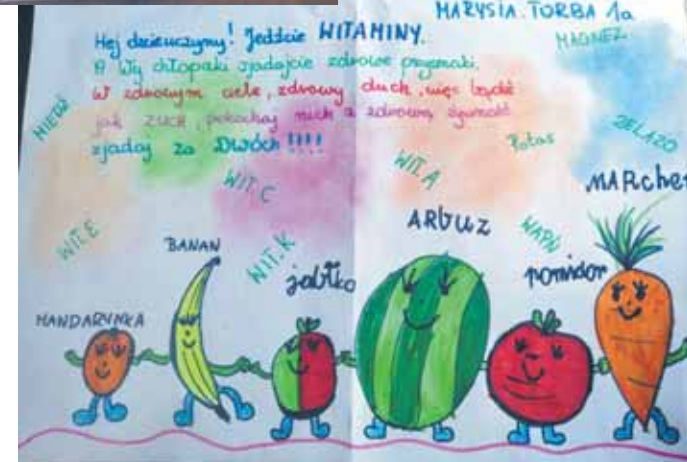 MARYSIA TORBA 1a
Hej dziewczyny! Jedzcie WITAMINY.
A Wy chłopaki zjadajcie zdrowe przysmaki.
W zdrowym ciele, zdrowy duch, więc bądź
jak ZUCH, pokochaj ruch a zdrową żywność
zjadaj za Dwóch!!!!
MAGNEZ
MIEDŹ
ŻELAZO
Potas
WIT. A
WIT. C
WIT. E
WIT. K
WAPŃ
MANDARYNKA
BANAN
jabłko
ARBUZ
pomidor
MARchew